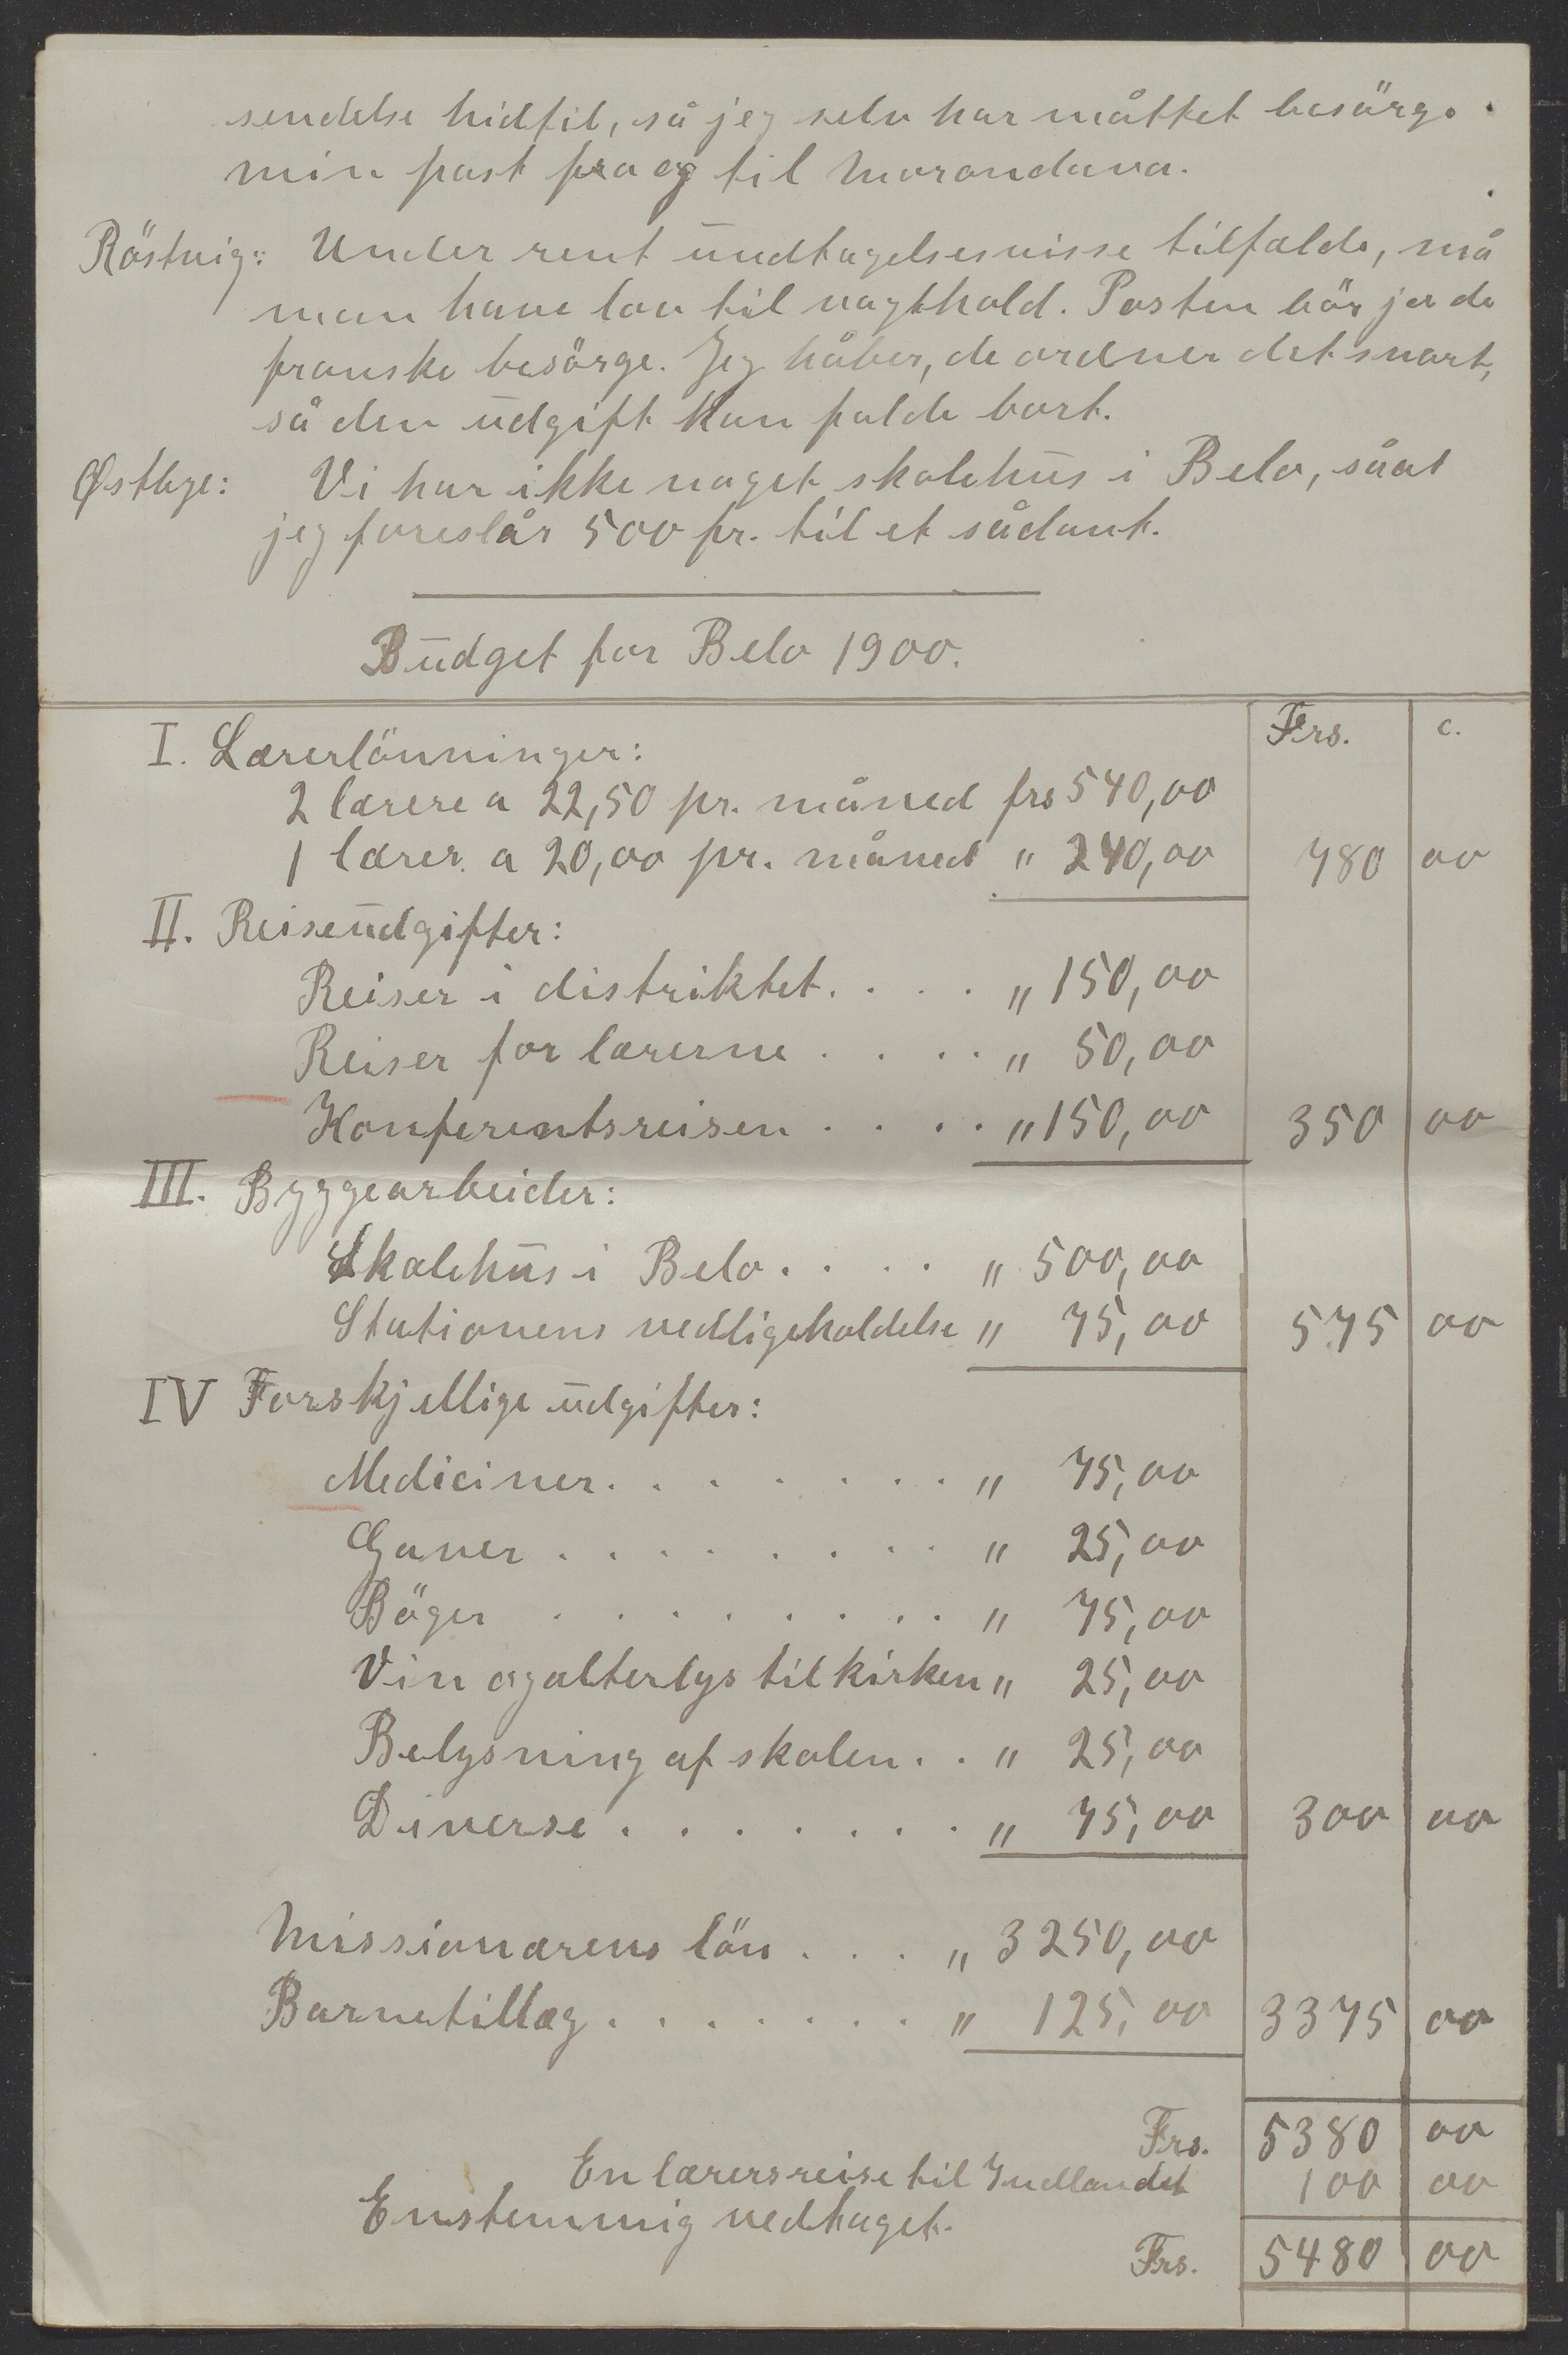 sendelse hidtil, så jeg selv har måttet besörge
min post fra og til Morondava.
Röstvig: Under rent undtagelsesvisse tilfælde, må
man have lov til vagthold. Posten bör jo de
franske besörge. Jeg håber, de ordner det snart,
så den udgift kan falde bort.
Østbye: Vi har ikke noget skolehus i Belo, såat
jeg foreslår 500 fr. til et sådant.
Budget for Belo 1900.
Frs. c.
I. Lærerlönninger:
2 lærere a 22,50 pr. måned frs 540,00
1 lærer a 20,00 pr. måned " 240,00 780 00
II. Reiseudgifter:
Reiser i distriktet. . . . " 150,00
Reiser for lærerne . . . . " 50,00
Konferentsreisen . . . . " 150,00 350 00
III. Byggearbeider:
Skolehus i Belo . . . . " 500,00
Stationens vedligeholdelse " 75,00 575 00
IV Forskjellige udgifter:
Mediciner. . . . . . . . " 75,00
Gaver . . . . . . . . " 25,00
Böger . . . . . . . . " 75,00
Vin og alterlys til kirken " 25,00
Belysning af skolen . . " 25,00
Diverse . . . . . . . . " 75,00 300 00
Missionærens lön . . . " 3250,00
Barnetillæg . . . . . . . " 125,00 3375 00
Frs. 5380 00
En lærersreise til Indlandet 100 00
Enstemmig vedtaget.
Frs. 5480 00